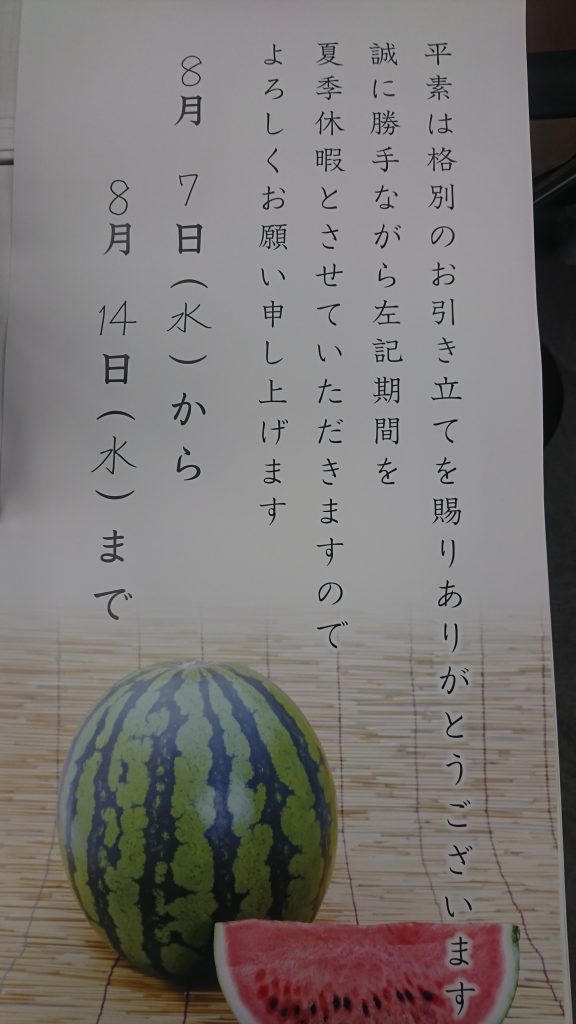 平素は格別のお引き立てを賜りありがとうございます
誠に勝手ながら左記期間を
夏季休暇とさせていただきますので
よろしくお願い申し上げます
8月 7日(水)から
8月 14日(水)まで